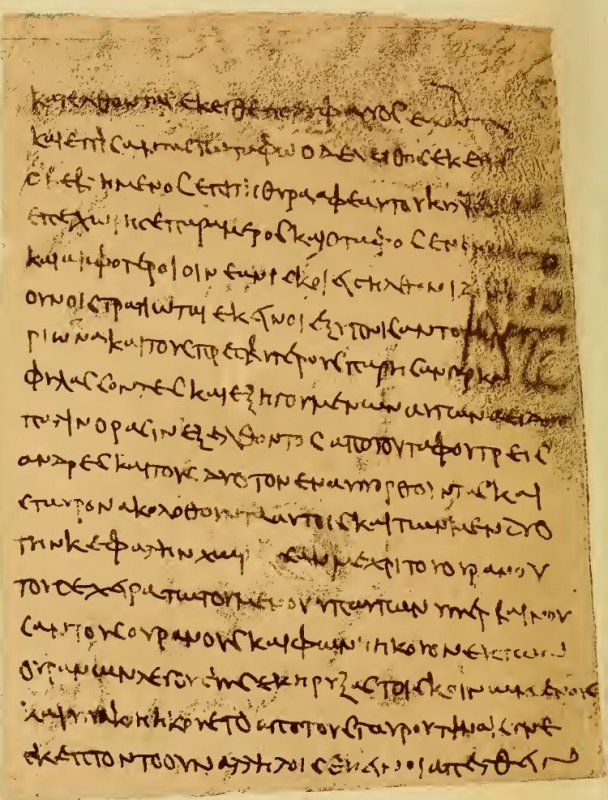 και εκειθε πολυ
και επισαντας τω ταφω ο δε λειθος εκει
επι τη θυρα αφ εαυτου
επεχωρησε παρα μερος και ο ταφος
και αμφοτεροι οι νεανισκοι εισηλθον
ουν οι στρατιωται εκεινοι εξυπνισαν το
ριωνα και τους πρεσβυτερους παρησαν γαρ
φυλασσοντες και εξηγουμενων αυτων
παλιν ορασιν εξελθοντος απο του ταφου τρεις
ανδρες και τους δυο τον ενα υπορθουντας και
σταυρον ακολοθουντα αυτοις και των μεν δυο
την κεφαλην μεχρι του ουρανου
του δε χειρατωτουμενου υπ αυτων υπερβαινου
σαν τους ουρανους και φωνης ηκουον εκ των
ουρανων λεγουσης εκηρυξας τοις κοινωμενοις
ηκουετο απο του σταυρου τιναι συνε
σκεπτοντο ουν αλληλοις εκεινοι απελθειν